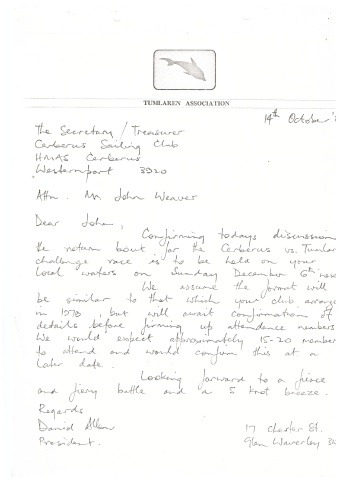 TUMLAREN ASSOCIATION
14th October '
The Secretary / Treasurer
Cerberus Sailing Club
HMAS Cerberus
Westernport 3920
Attn. Mr John Weaver
Dear John,
Confirming todays discussion
the return bout for the Cerberus vs. Tumlar
challenge race is to be held on your
local waters on Sunday December 6th next
We assume the format will
be similar to that which your club arrange
in 1978, but will await confirmation of
details before firming up attendance numbers
We would expect approximately 15-20 member
to attend and would confirm this at a
later date.
Looking forward to a fierce
and fiery battle and a 5 knot breeze.
Regards
David Allen
President.
17 Chester St.
Glen Waverley 3